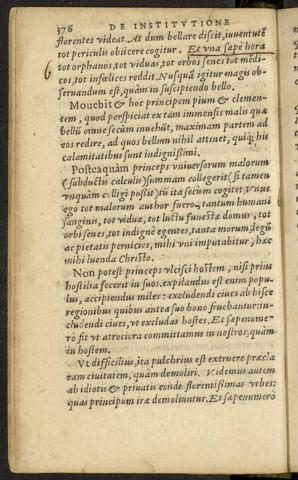 376 DE INSTITVTIONE
florentes videat. At dum bellare discit, iuuentutē
tot periculis obiicere cogitur. Et vna sæpe hora
tot orphanos, tot viduas, tot orbos senes tot medi-
cos, tot infœlices reddit. Nusquā igitur magis ob-
seruandum est, quàm in suscipiendo bello.
Mouebit & hoc principem pium & clemen-
tem, quod perspiciat ex tam immensis malis quæ
bellū omne secùm inuehit, maximam partem ad
eos redire, ad quos bellum nihil attinet, quiq; his
calamitatibus sunt indignißimi.
Posteaquàm princeps vniuersorum malorum
(subductis calculis) summam collegerit (si tamen
vnquàm colligi possit) tū ita secum cogitet. Vnus
ego tot malorum author fuero, tantum humani
sanginis, tot viduæ, tot luctu funestæ domus, tot
orbi senes, tot indignè egentes, tanta morum, legū
ac pietatis pernicies, mihi vni imputabitur, hæc
mihi luenda Christo.
Non potest princeps vlcisci hostem, nisi prius
hostilia fecerit in suos. expilandus est enim popu-
lus, accipiendus miles: excludendi ciues ab hisce
regionibus quibus antea suo bono fruebantur: in-
cludendi ciues, vt excludas hostes. Et sæpenume-
rò fit vt atrociora committamus in nostros, quàm
in hostem.
Vt difficilius, ita pulchrius est extruere præcla
ram ciuitatem, quàm demoliri. Videmus autem
ab idiotis & priuatis condi florentißimas vrbes:
quas principum iræ demoliuntur. Et sæpenumero